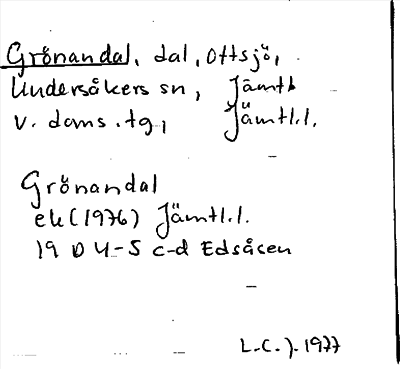 Grönandal, dal, Ottsjö,
Undersåkers sn, Jämtb
v. doms. tg, Jämtl.l.
Grönandal
ek (1976) Jämtl.l.
19 D 4-5 c-d Edsåsen
L.C.J. 1977